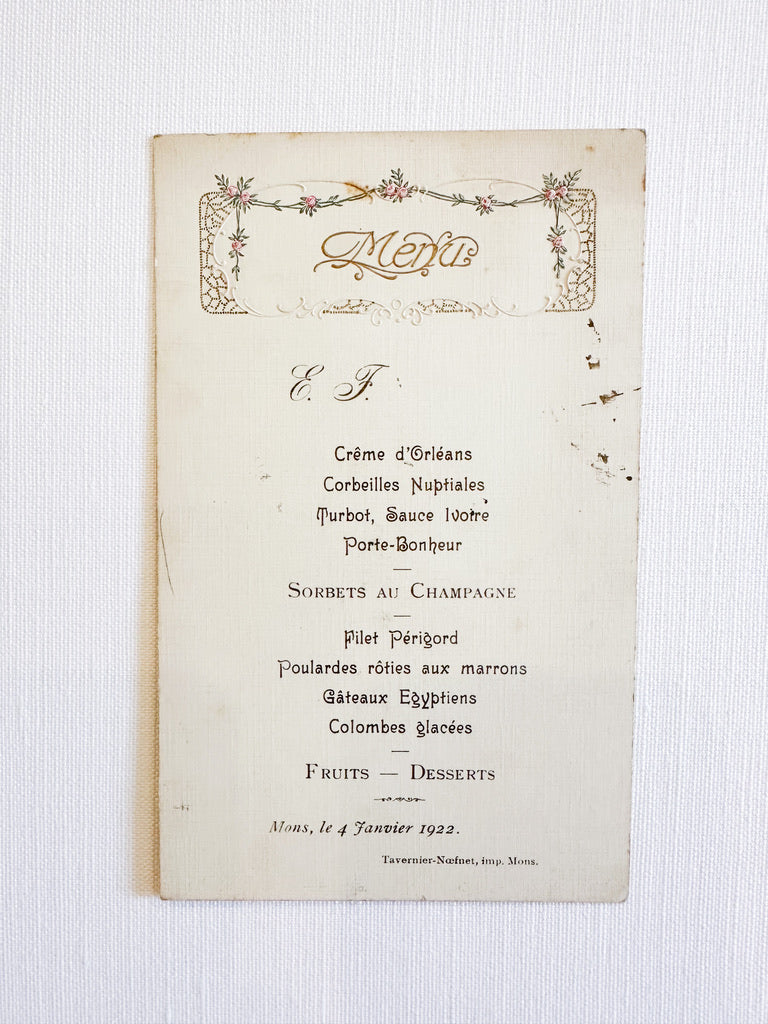 Menu
E. F.
Crême d'Orléans
Corbeilles Nuptiales
Turbot, Sauce Ivoire
Porte-Bonheur
Sorbets au Champagne
Filet Périgord
Poulardes rôties aux marrons
Gâteaux Egyptiens
Colombes glacées
Fruits — Desserts
Mons, le 4 Janvier 1922.
Tavernier-Nœfnet, imp. Mons.